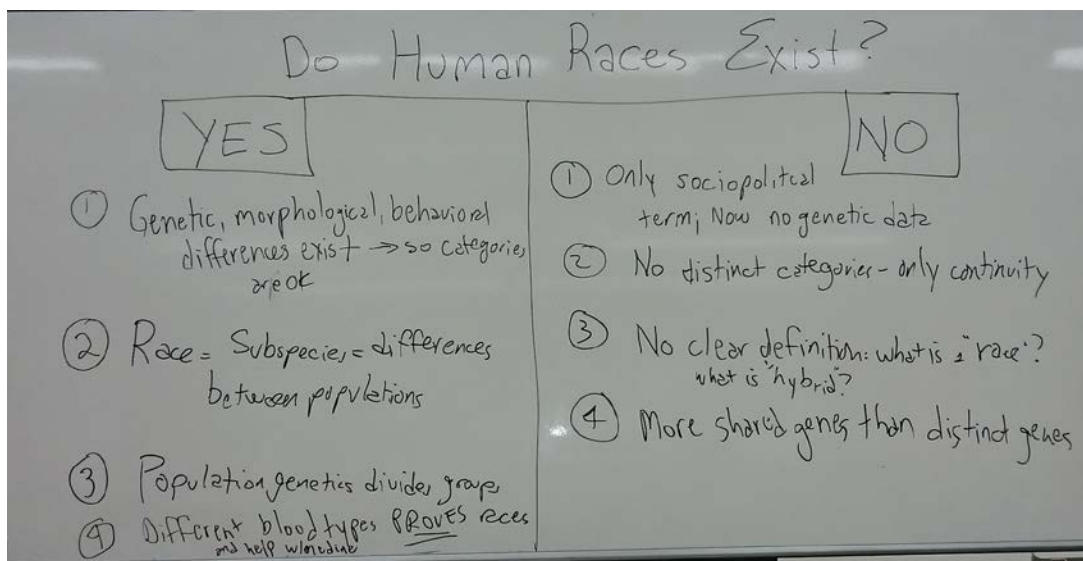 Do Human Races Exist?
YES
① Genetic, morphological, behavioral
differences exist → so categories
are ok
② Race = Subspecies = differences
between populations
③ Population genetics divides groups
④ Different blood types PROVES races
and help w/medine
NO
① Only sociopolitcal
term; Now no genetic data
② No distinct categories - only continuity
③ No clear definition: what is a "race"?
what is "hybrid"?
④ More shared genes than distinct genes